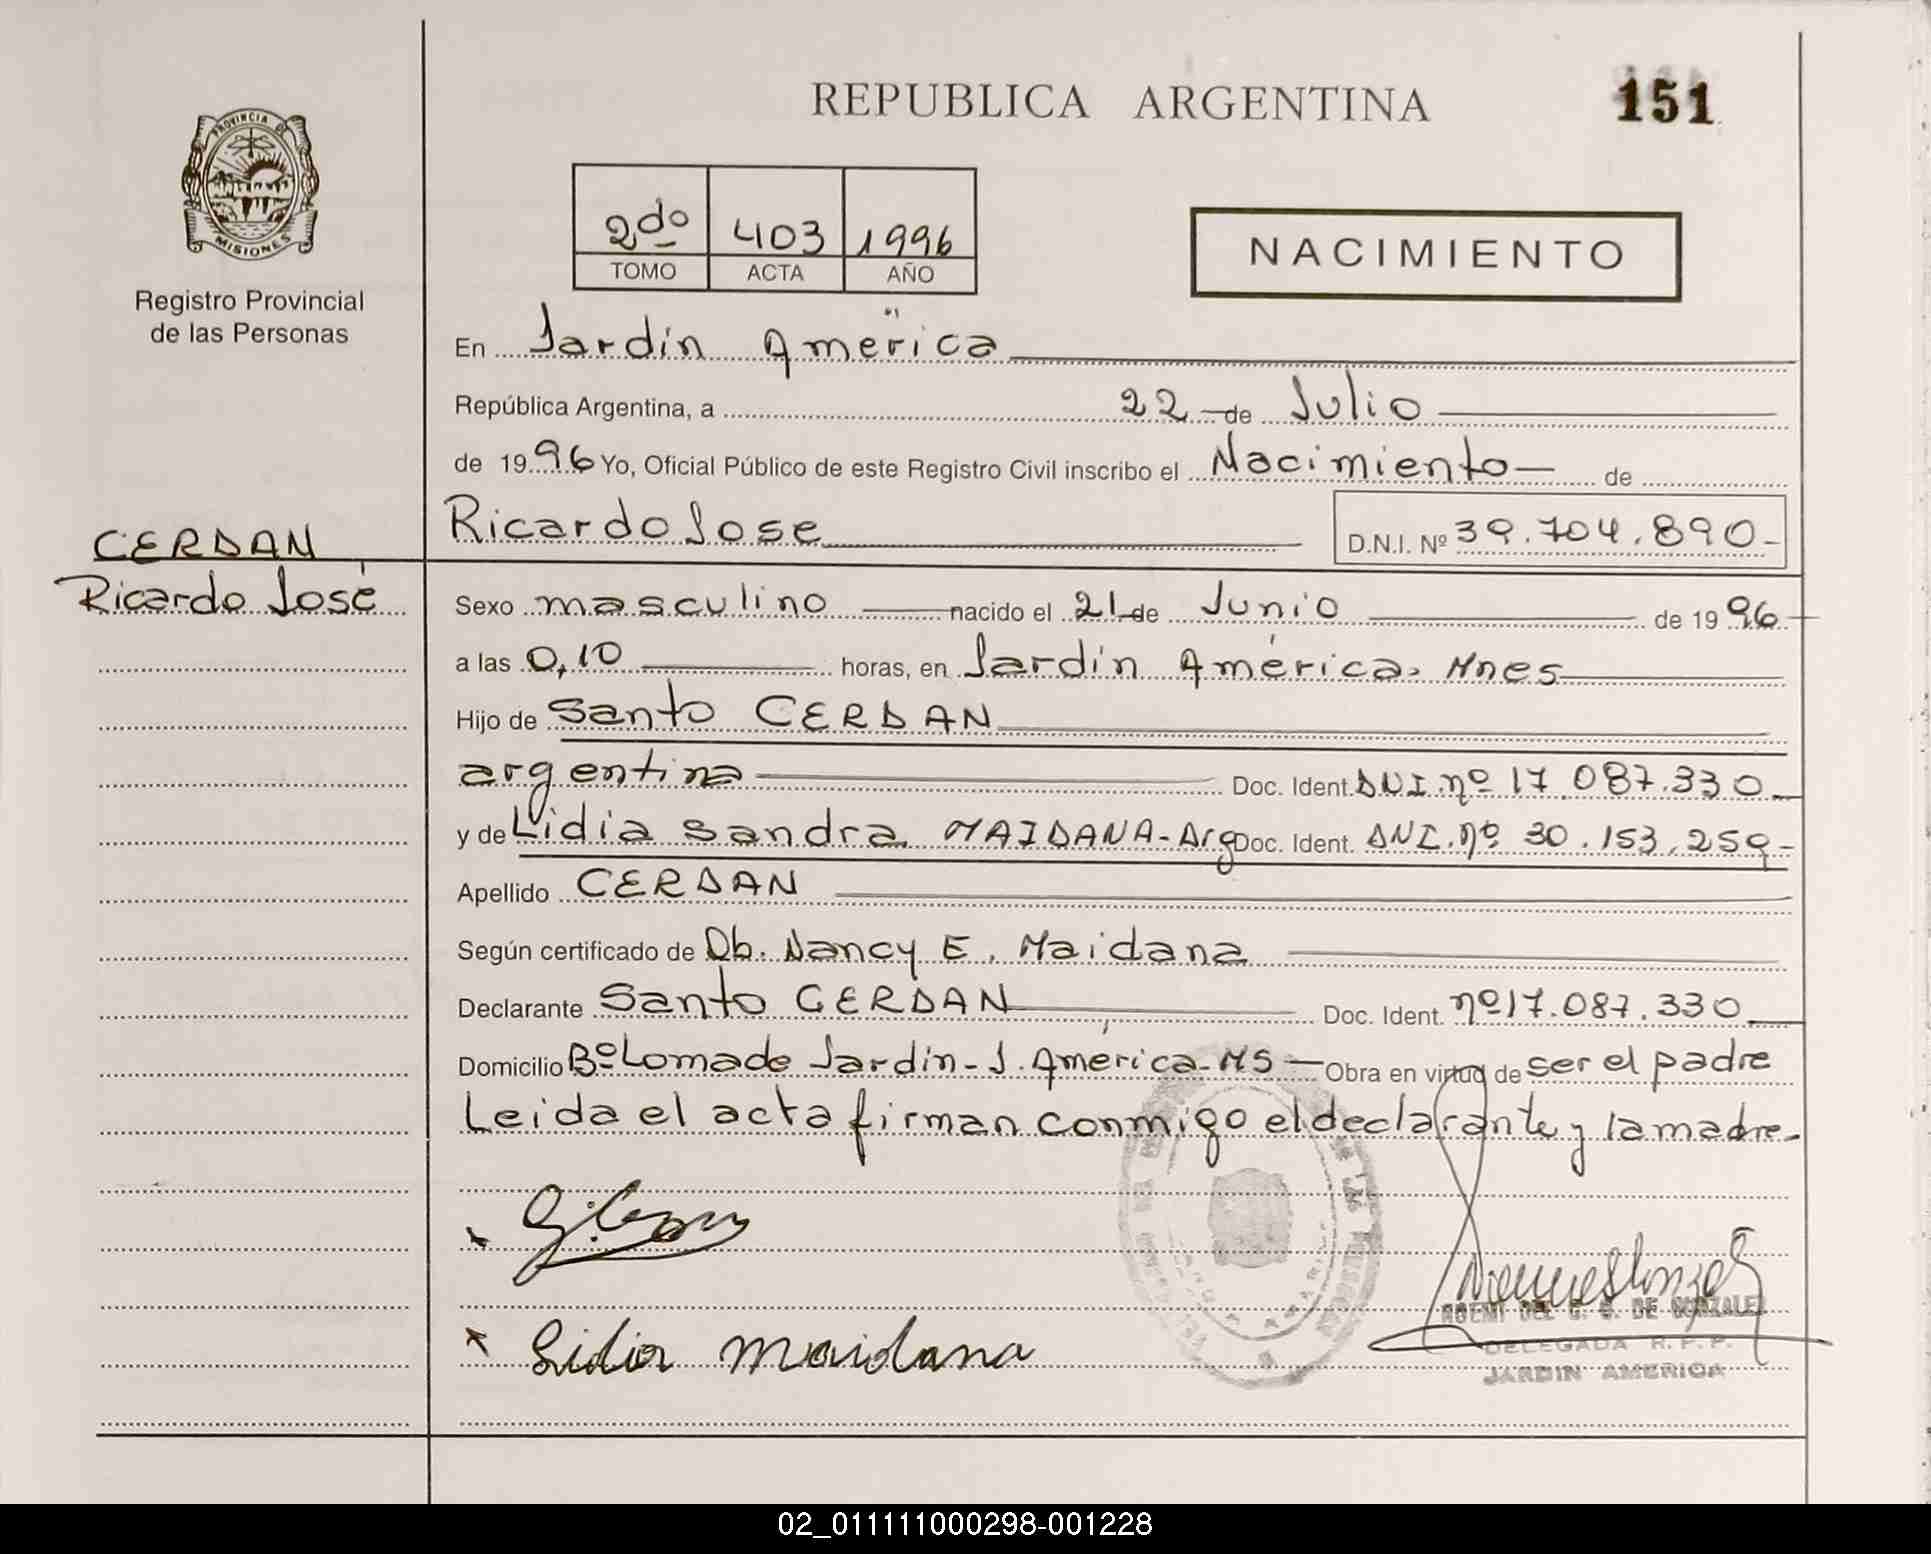 REPUBLICA ARGENTINA
151
PROVINCIA DE
MISIONES
Registro Provincial
de las Personas
2do 403 1996
TOMO ACTA AÑO
NACIMIENTO
En Jardín América
República Argentina, a 22 de Julio
de 1996 Yo, Oficial Público de este Registro Civil inscribo el Nacimiento de
Ricardo Jose D.N.I. Nº 39.704.890-
CERDAN
Ricardo José
Sexo masculino nacido el 21 de Junio de 1996
a las 0,10 horas, en Jardín América. Mnes
Hijo de Santo CERDAN
argentina Doc. Ident. DNI.nº 17.087.330
y de Lidia Sandra MAIDANA-Arg Doc. Ident. DNI.nº 30.153.259-
Apellido CERDAN
Según certificado de Ob. Nancy E. Maidana
Declarante Santo CERDAN Doc. Ident. nº17.087.330
Domicilio Bº Loma de Jardín-J. América-MS Obra en virtud de ser el padre
Leida el acta firman conmigo el declarante y la madre-
Lidia Maidana
DE GONZALEZ
DELEGADA R.P.P.
JARDIN AMERICA
02_011111000298-001228